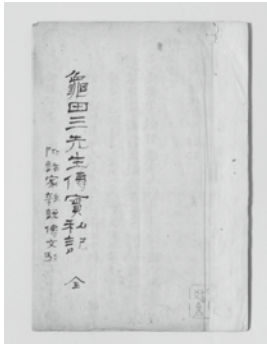 龜田三先生傳實私記 全
附諸家雜說傳文引